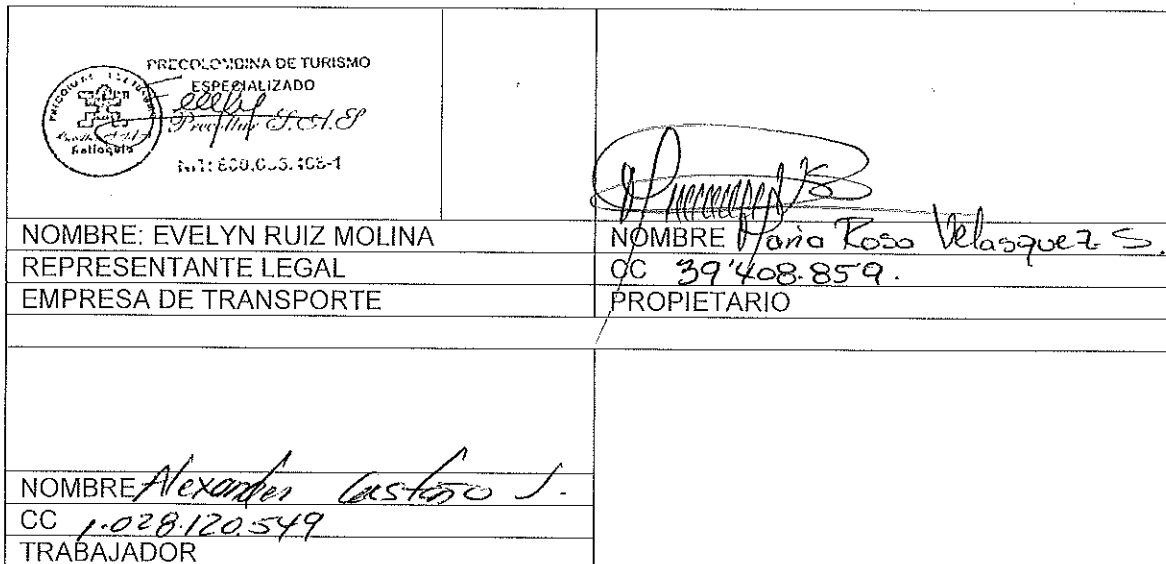 PRECOLOMBINA DE TURISMO
ESPECIALIZADO
S.A.S
NOMBRE: EVELYN RUIZ MOLINA
REPRESENTANTE LEGAL
EMPRESA DE TRANSPORTE
NOMBRE Maria Rosa Velasquez S.
CC 39'408.859.
PROPIETARIO
NOMBRE Alexander Castaño J.
CC 1.028.120.549
TRABAJADOR